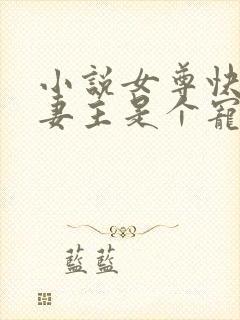 小說女尊快
妻主是个寵
藍藍